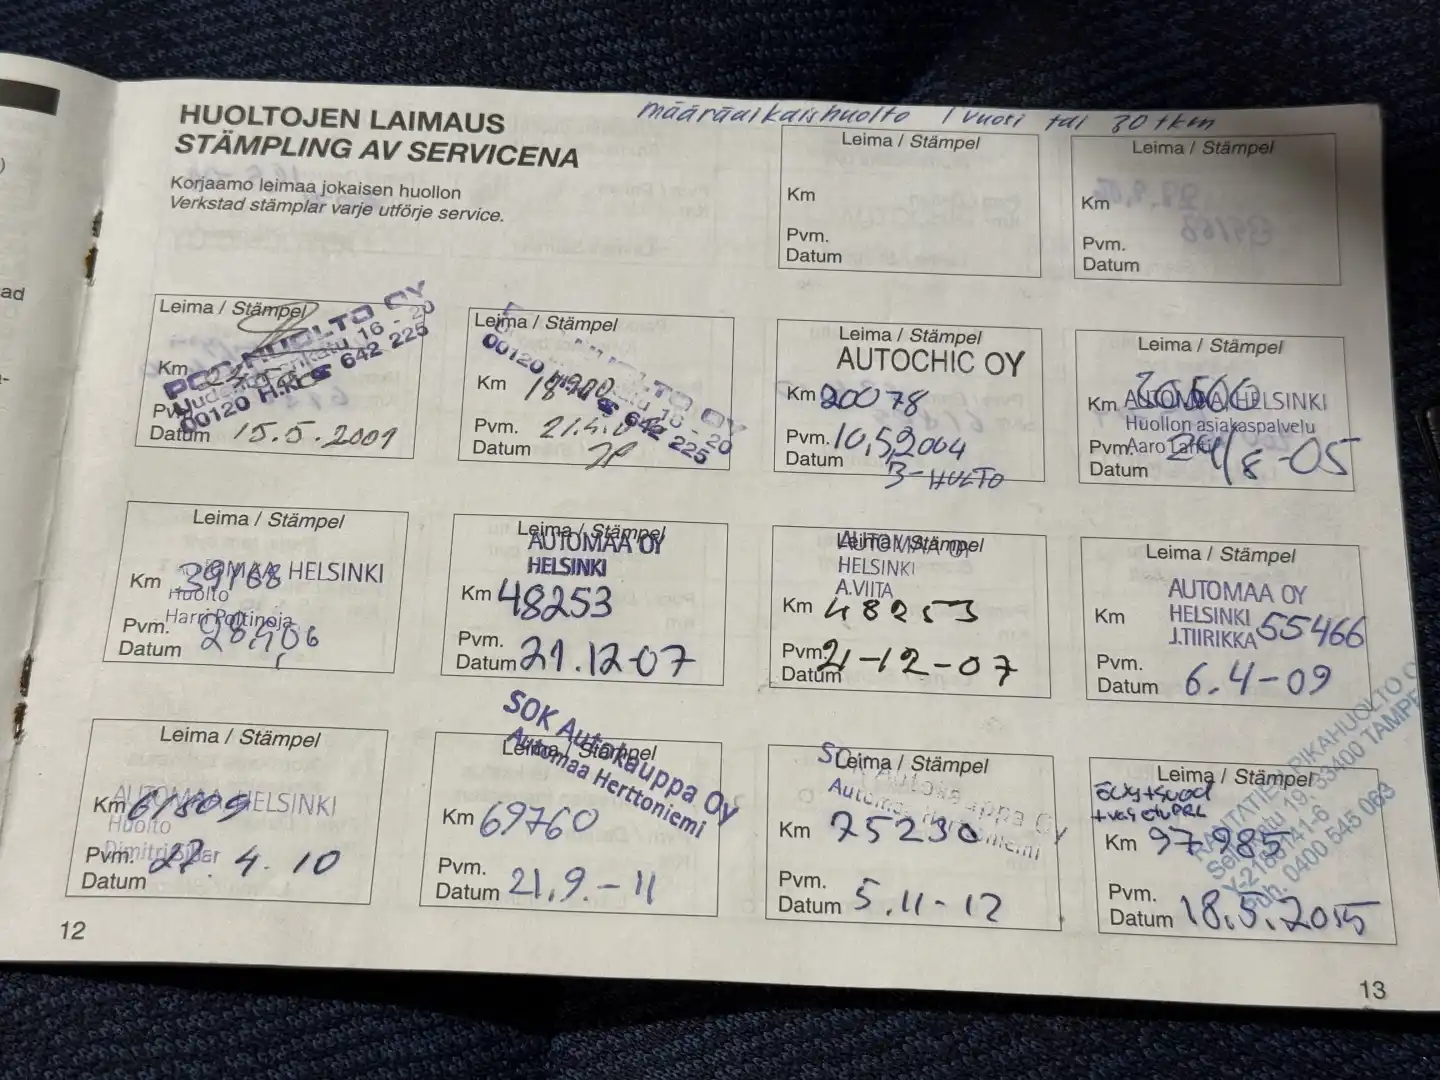 määräaikaishuolto 1 vuosi tai 30 tkm
HUOLTOJEN LAIMAUS
STÄMPLING AV SERVICENA
Korjaamo leimaa jokaisen huollon
Verkstad stämplar varje utförje service.
Leima / Stämpel
Km
Pvm.
Datum
Leima / Stämpel
Km
Pvm.
Datum
ad
Leima / Stämpel
HUOLTO OY
16 - 20
00120 H 642 225
Km
Pv
Datum 15.5.2001
Leima / Stämpel
HUOLTO OY
16 - 20
00120 642 225
Km
Pvm. 21.4.
Datum
Leima / Stämpel
AUTOCHIC OY
Km 20078
Pvm. 10,5,2004
Datum
3-HUOLTO
Leima / Stämpel
Km 30566
AUTOMAA HELSINKI
Huollon asiakaspalvelu
Pvm. Aaro
Datum 24/8-05
Leima / Stämpel
HELSINKI
Km 39168
Huolto
Harri Poltinoja
Pvm.
Datum
Leima / Stämpel
AUTOMAA OY
HELSINKI
Km 48253
Pvm.
Datum 21.12-07
Leima / Stämpel
AUTOMAA OY
HELSINKI
A.VIITA
Km 48253
Pvm. 21-12-07
Datum
Leima / Stämpel
AUTOMAA OY
HELSINKI
J.TIIRIKKA
Km 55466
Pvm.
Datum 6.4-09
Leima / Stämpel
AUTOMAA HELSINKI
Km 61809
Huolto
Dimitri
Pvm. 27.4.10
Datum
SOK Autokauppa Oy
Automaa Herttoniemi
Leima / Stämpel
Km 69760
Pvm.
Datum 21.9.-11
Leima / Stämpel
SOK Autokauppa Oy
Automaa Herttoniemi
Km 75230
Pvm.
Datum 5.11-12
Leima / Stämpel
RAUTATIENPARIKAHUOLTO
19, 33400 TAMPE
Y-2186141-6
Puh. 0400 545 063
Km 97985
Pvm.
Datum 18.5.2015
12
13